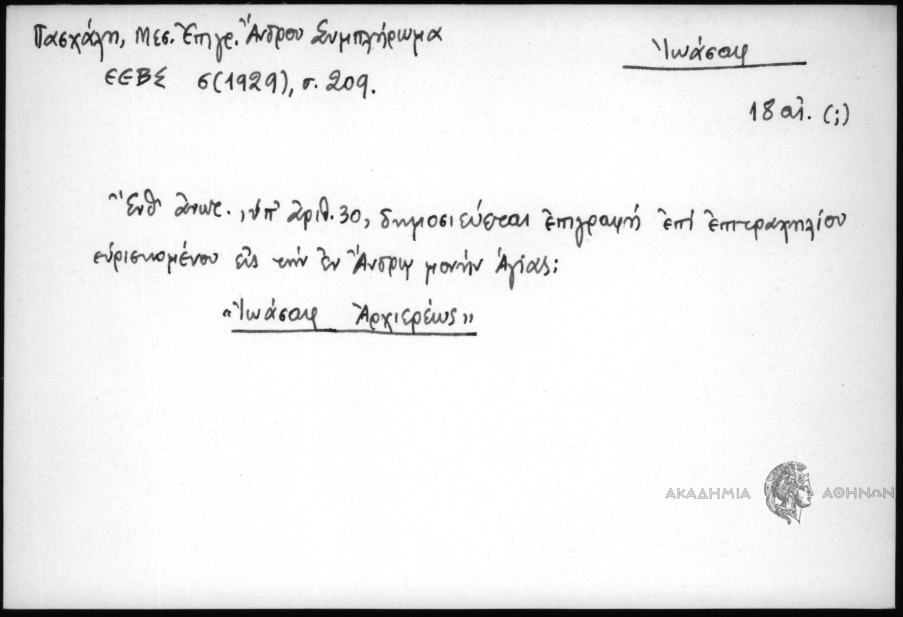 Πασχάλη, Μεσ. Ἐπιγρ. Ἄνδρου Συμπλήρωμα
ΕΕΒΣ 6(1929), σ. 209.
Ἰωάσαφ
18 αἰ. (;)
Ἔνθ' ἀνωτ., ὑπ' ἀριθ. 30, δημοσιεύεται ἐπιγραφή ἐπί ἐπιτραχηλίου
εὑρισκομένου εἰς τήν ἐν Ἄνδρῳ μονήν Ἁγίας:
«Ἰωάσαφ Ἀρχιερέως»
ΑΚΑΔΗΜΙΑ ΑΘΗΝΩΝ